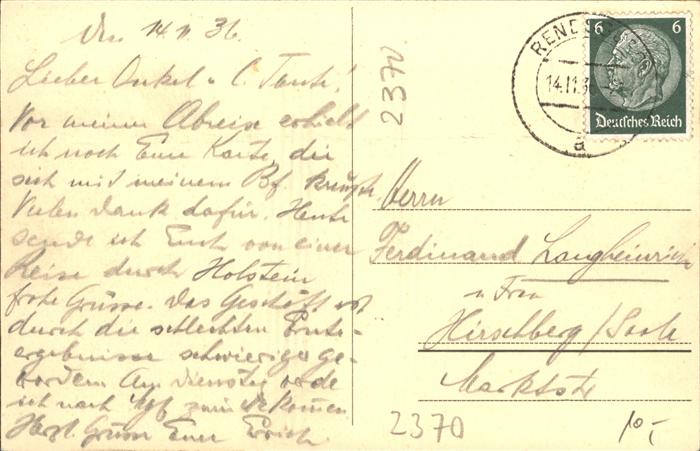 den 14.11.36.
Lieber Onkel u. l. Tante!
Vor meiner Abreise erhielt
ich noch Eure Karte, die
sich mit meinem Bf. kreuzte.
Vielen Dank dafür. Heute
sende ich Euch von einer
Reise durch Holstein
frohe Grüsse. Das Geschäft ist
durch die schlechten Ernte-
ergebnisse schwieriger ge-
worden. Am Dienstag werde
ich nach
Herzl. Grüsse Euer Erich.
2370
RENDSB
14.11.36
a
6 6
Deutsches Reich
Herrn
Ferdinand Langheinrich
u. Frau
Hirschberg/Saale
Marktstr
2370
10,-